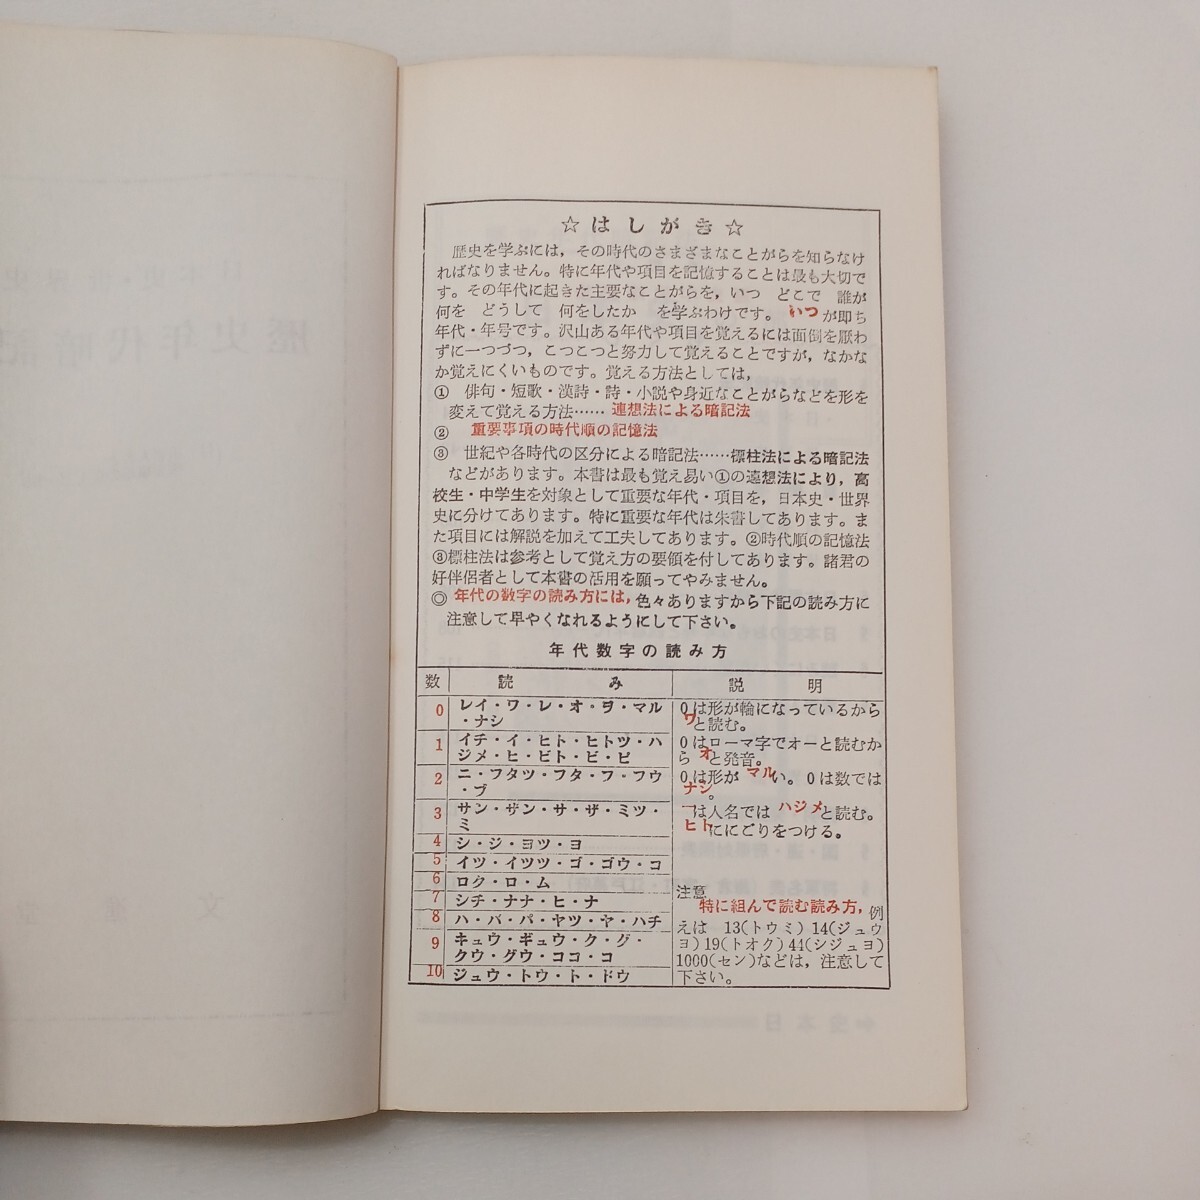 ☆はしがき☆
歴史を学ぶには，その時代のさまざまなことがらを知らなけ
ればなりません。特に年代や項目を記憶することは最も大切で
す。その年代に起きた主要なことがらを，いつ　どこで　誰が
何を　どうして　何をしたか　を学ぶわけです。いつが即ち
年代・年号です。沢山ある年代や項目を覚えるには面倒を厭わ
ずに一つづつ，こつこつと努力して覚えることですが，なかな
か覚えにくいものです。覚える方法としては，
① 俳句・短歌・漢詩・詩・小説や身近なことがらなどを形を
変えて覚える方法…… 連想法による暗記法
② 重要事項の時代順の記憶法
③ 世紀や各時代の区分による暗記法……標柱法による暗記法
などがあります。本書は最も覚え易い①の連想法により，高
校生・中学生を対象として重要な年代・項目を，日本史・世界
史に分けてあります。特に重要な年代は朱書してあります。ま
た項目には解説を加えて工夫してあります。②時代順の記憶法
③標柱法は参考として覚え方の要領を付してあります。諸君の
好伴侶者として本書の活用を願ってやみません。
◎ 年代の数字の読み方には，色々ありますから下記の読み方に
注意して早やくなれるようにして下さい。
年代数字の読み方
数　読み　説明
0 レイ・ワ・レ・オ・ヲ・マル
・ナシ
1 イチ・イ・ヒト・ヒトツ・ハ
ジメ・ヒ・ビト・ビ・ピ
2 ニ・フタツ・フタ・フ・フウ
・ブ
3 サン・ザン・サ・ザ・ミツ・
ミ
4 シ・ジ・ヨツ・ヨ
5 イツ・イツツ・ゴ・ゴウ・コ
6 ロク・ロ・ム
7 シチ・ナナ・ヒ・ナ
8 ハ・バ・パ・ヤツ・ヤ・ハチ
9 キュウ・ギュウ・ク・グ・
クウ・グウ・ココ・コ
10 ジュウ・トウ・ト・ドウ
0は形が輪になっているから
ワと読む。
0はローマ字でオーと読むか
らオと発音。
0は形がマルい。0は数では
ナシ。
一は人名ではハジメと読む。
ヒトににごりをつける。
注意
特に組んで読む読み方，例
えば 13(トウミ) 14(ジュウ
ヨ) 19(トオク) 44(シジュヨ)
1000(セン)などは，注意して
下さい。